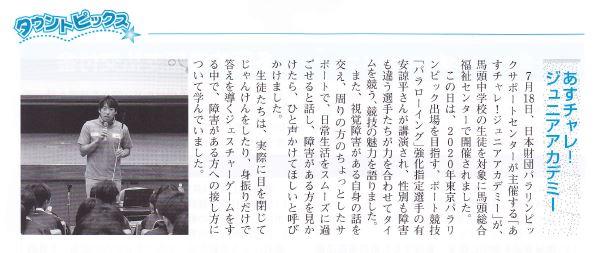 タウントピックス
あすチャレ！
ジュニアアカデミー
7月18日、日本財団パラリンピッ
クサポートセンターが主催する「あ
すチャレ！ジュニアアカデミー」が、
馬頭中学校の生徒を対象に馬頭総合
福祉センターで開催されました。
この日は、2020年東京パラリ
ンピック出場を目指す、ボート競技
「パラローイング」強化指定選手の有
安諒平さんが講演され、性別も障害
も違う選手たちが力を合わせてタイ
ムを競う、競技の魅力を語りました。
また、視覚障害がある自身の話を
交え、周りの方のちょっとしたサ
ポートで、日常生活をスムーズに過
ごせると話し、障害がある方を見か
けたら、ひと声かけてほしいと呼び
かけました。
生徒たちは、実際に目を閉じて
じゃんけんをしたり、身振りだけで
答えを導くジェスチャーゲームをす
る中で、障害がある方への接し方に
ついて学んでいました。